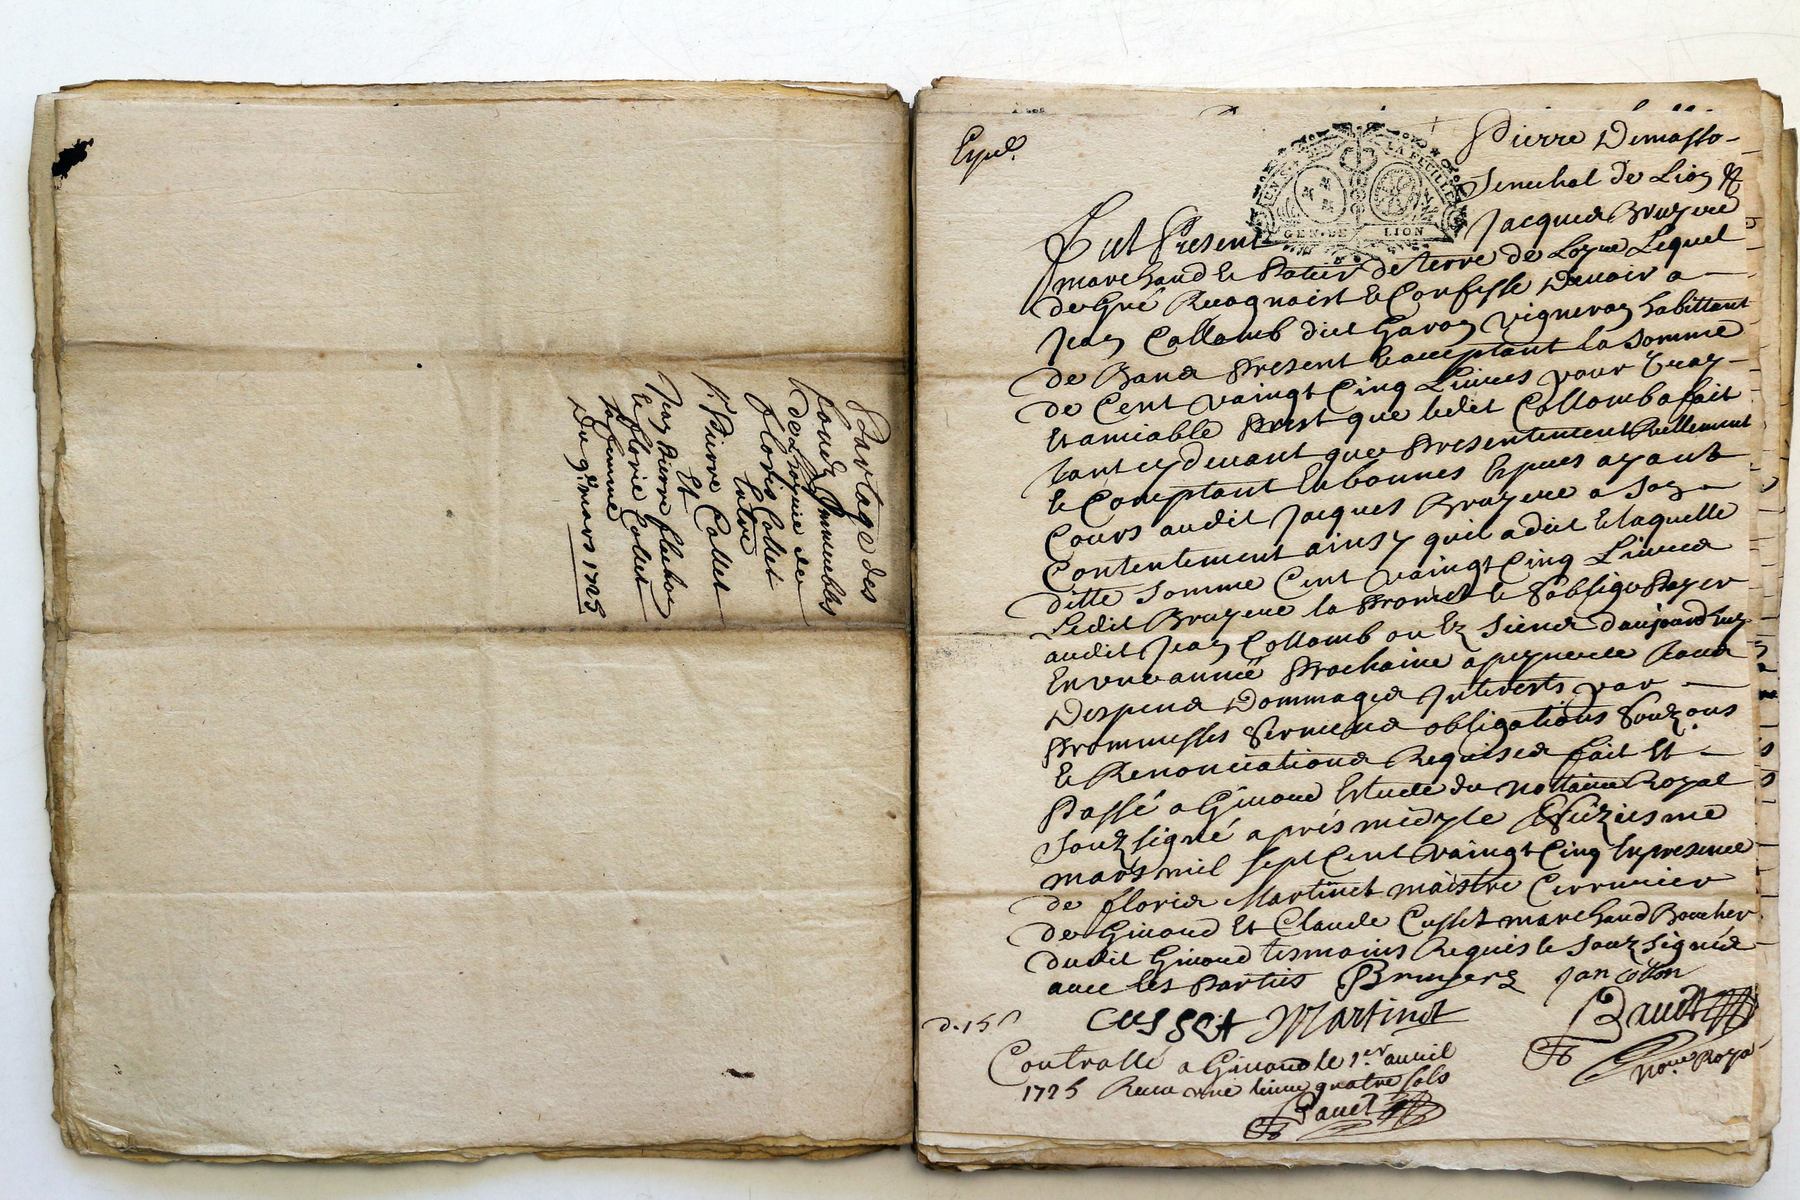 Partage des
fonds Immeubles
de L'hoyrie de
floris Collet
Entre
Sr. Pierre Collet
Et
Jean Pierre
Et florie Collet
sa femme
Du 9e. mars 1725
Expé.
GEN. DE LION
LA FEUILLE
Pierre Demasso
Senechal de Lion &
Fut Present Jacques Bruyere
marchand et Potier de terre de Loyre Lequel
de Gré Recognoist et Confesse Devoir a
Jean Collomb dict Garon vigneron habittant
de Bans Present et acceptant la Somme
de Cent vaingt Cinq Livres pour vray
Et amiable Prest que ledit Collomb a fait
tant cy devant que Presentement Reellement
et Comptant En bonnes Espèces ayant
Cours audit Jacques Bruyere a Son
Contentement ainsy quil a dit Et laquelle
ditte Somme Cent vaingt Cinq Livres
Ledit Bruyere la Promet et Soblige Payer
audit Jean Collomb ou Ez Siens daujourdhuy
En une année Prochaine a peyne de tous
Despens Dommages Interests par
Prommesses Sermens obligations Soumons
et Renonciations Requises fait Et
Passé a Givors Estude du Nottaire Royal
Souz signé après midy le Neuziesme
mars mil Sept Cent vaingt Cinq En presence
de floris Martinet maistre Cerrurier
de Givors Et Claude Cusset marchand Boucher
dudit Givors tesmoins Requis et Souz Signés
avec les Parties Bruyere Jan collon
d. 15 s cusset Martinet
Controllé a Givors le 1er. avvril
1725 Receu une livre quatre sols
Nore. Roya